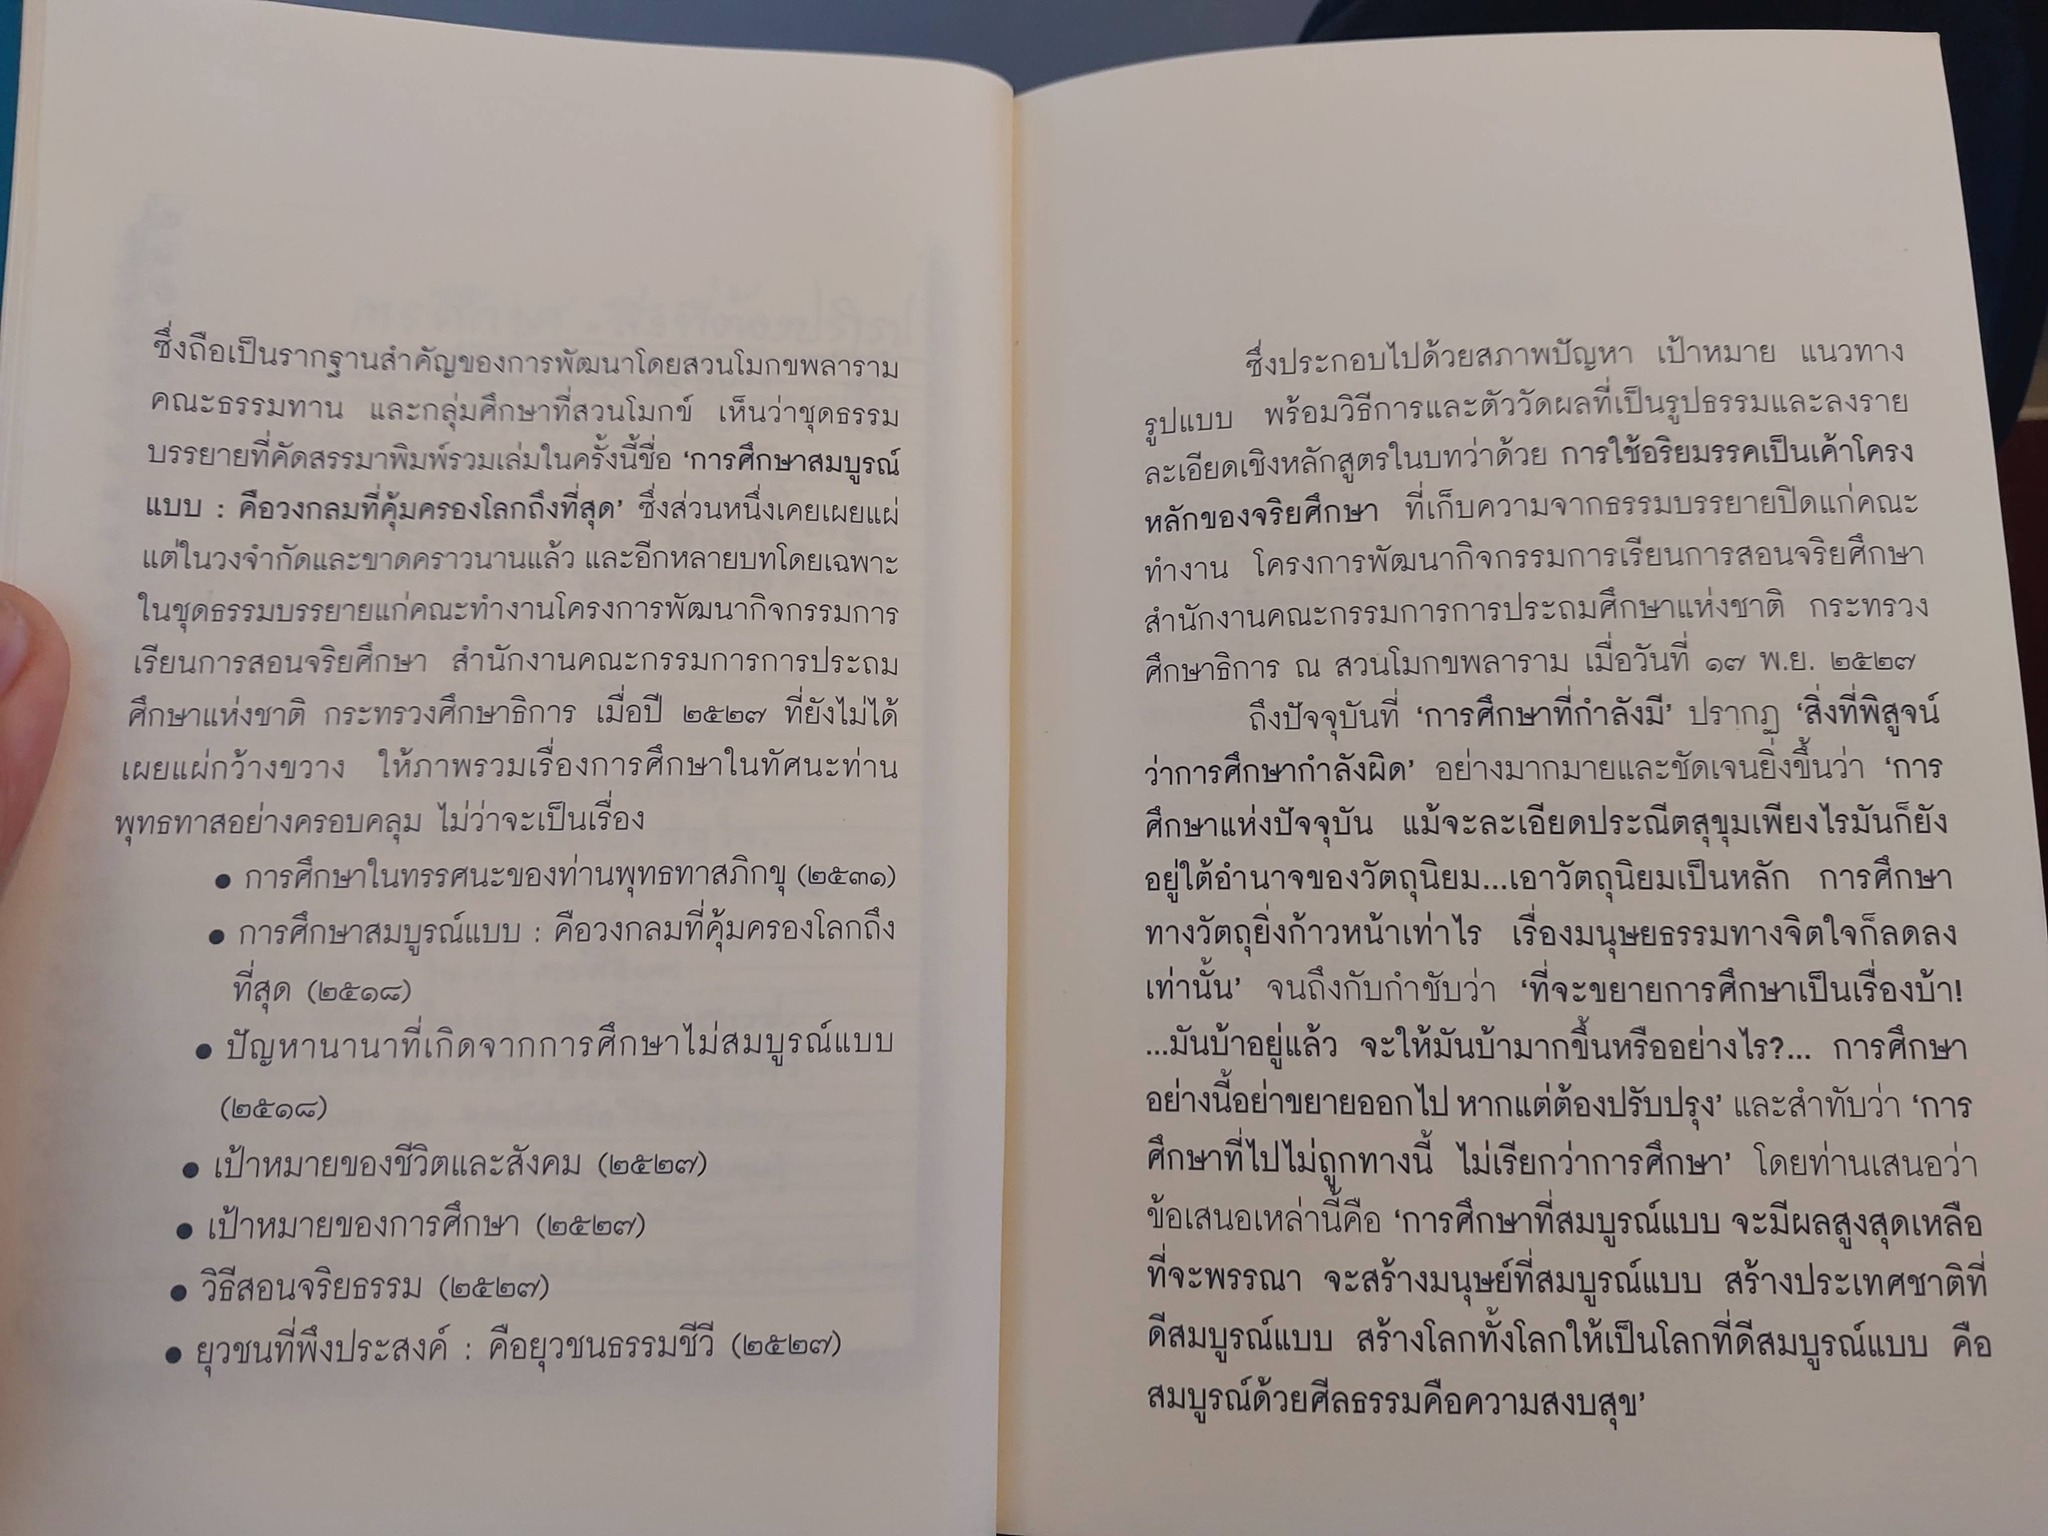 ซึ่งถือเป็นรากฐานสำคัญของการพัฒนาโดยสวนโมกขพลาราม
คณะธรรมทาน และกลุ่มศึกษาที่สวนโมกข์ เห็นว่าชุดธรรม
บรรยายที่คัดสรรมาพิมพ์รวมเล่มในครั้งนี้ชื่อ ‘การศึกษาสมบูรณ์
แบบ : คือวงกลมที่คุ้มครองโลกถึงที่สุด’ ซึ่งส่วนหนึ่งเคยเผยแผ่
แต่ในวงจำกัดและขาดคราวนานแล้ว และอีกหลายบทโดยเฉพาะ
ในชุดธรรมบรรยายแก่คณะทำงานโครงการพัฒนากิจกรรมการ
เรียนการสอนจริยศึกษา สำนักงานคณะกรรมการการประถม
ศึกษาแห่งชาติ กระทรวงศึกษาธิการ เมื่อปี ๒๕๒๗ ที่ยังไม่ได้
เผยแผ่กว้างขวาง ให้ภาพรวมเรื่องการศึกษาในทัศนะท่าน
พุทธทาสอย่างครอบคลุม ไม่ว่าจะเป็นเรื่อง
● การศึกษาในทรรศนะของท่านพุทธทาสภิกขุ (๒๕๓๑)
● การศึกษาสมบูรณ์แบบ : คือวงกลมที่คุ้มครองโลกถึง
ที่สุด (๒๕๑๘)
● ปัญหานานาที่เกิดจากการศึกษาไม่สมบูรณ์แบบ
(๒๕๑๘)
● เป้าหมายของชีวิตและสังคม (๒๕๒๗)
● เป้าหมายของการศึกษา (๒๕๒๗)
● วิธีสอนจริยธรรม (๒๕๒๗)
● ยุวชนที่พึงประสงค์ : คือยุวชนธรรมชีวี (๒๕๒๗)
ซึ่งประกอบไปด้วยสภาพปัญหา เป้าหมาย แนวทาง
รูปแบบ พร้อมวิธีการและตัววัดผลที่เป็นรูปธรรมและลงราย
ละเอียดเชิงหลักสูตรในบทว่าด้วย การใช้อริยมรรคเป็นเค้าโครง
หลักของจริยศึกษา ที่เก็บความจากธรรมบรรยายปิดแก่คณะ
ทำงาน โครงการพัฒนากิจกรรมการเรียนการสอนจริยศึกษา
สำนักงานคณะกรรมการการประถมศึกษาแห่งชาติ กระทรวง
ศึกษาธิการ ณ สวนโมกขพลาราม เมื่อวันที่ ๑๗ พ.ย. ๒๕๒๗
ถึงปัจจุบันที่ ‘การศึกษาที่กำลังมี’ ปรากฏ ‘สิ่งที่พิสูจน์
ว่าการศึกษากำลังผิด’ อย่างมากมายและชัดเจนยิ่งขึ้นว่า ‘การ
ศึกษาแห่งปัจจุบัน แม้จะละเอียดประณีตสุขุมเพียงไรมันก็ยัง
อยู่ใต้อำนาจของวัตถุนิยม...เอาวัตถุนิยมเป็นหลัก การศึกษา
ทางวัตถุยิ่งก้าวหน้าเท่าไร เรื่องมนุษยธรรมทางจิตใจก็ลดลง
เท่านั้น’ จนถึงกับกำชับว่า ‘ที่จะขยายการศึกษาเป็นเรื่องบ้า!
...มันบ้าอยู่แล้ว จะให้มันบ้ามากขึ้นหรืออย่างไร?... การศึกษา
อย่างนี้อย่าขยายออกไป หากแต่ต้องปรับปรุง’ และสำทับว่า ‘การ
ศึกษาที่ไปไม่ถูกทางนี้ ไม่เรียกว่าการศึกษา’ โดยท่านเสนอว่า
ข้อเสนอเหล่านี้คือ ‘การศึกษาที่สมบูรณ์แบบ จะมีผลสูงสุดเหลือ
ที่จะพรรณา จะสร้างมนุษย์ที่สมบูรณ์แบบ สร้างประเทศชาติที่
ดีสมบูรณ์แบบ สร้างโลกทั้งโลกให้เป็นโลกที่ดีสมบูรณ์แบบ คือ
สมบูรณ์ด้วยศีลธรรมคือความสงบสุข’